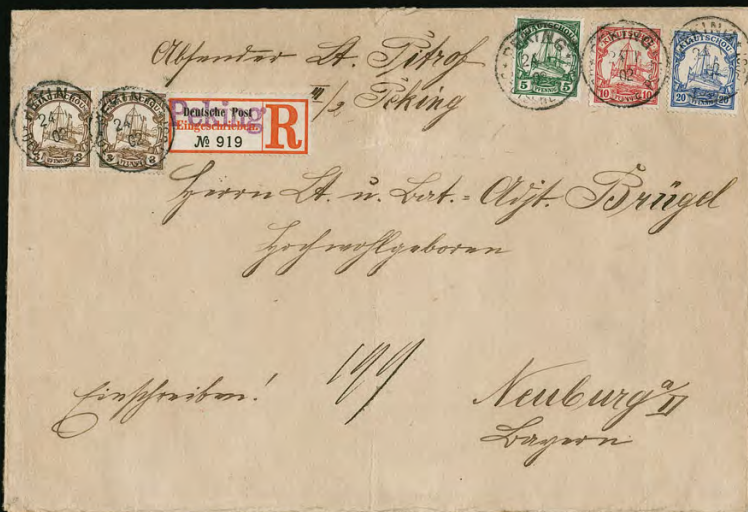 Absender Lt. Pitrof
III/2 Peking
PEKING
24
02
KIAUTSCHOU
5 PFENNIG 5
PEKING
02
10 PFENNIG 10
KIAUTSCHOU
20 PFENNIG 20
PEKING
24
02
3 PFENNIG 3
PEKING
24
02
3 PFENNIG 3
Peking
Deutsche Post
Eingeschrieben.
№ 919
R
Herrn Lt. u. Bat.-Adjt. Brügel
Hochwohlgeboren
Einschreiben!
199
Neuburg a/D
Bayern